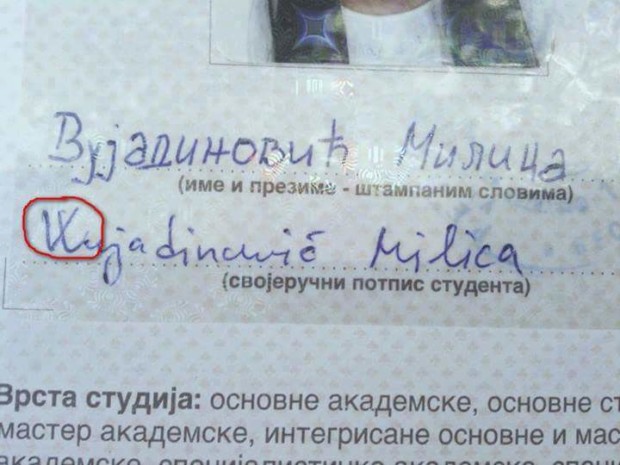 Вујадиновић Милица
(име и презиме - штампаним словима)
Vujadinović Milica
(својеручни потпис студента)
Врста студија: основне академске, основне ст
мастер академске, интегрисане основне и мас
академске, специјалистичке академске, специ